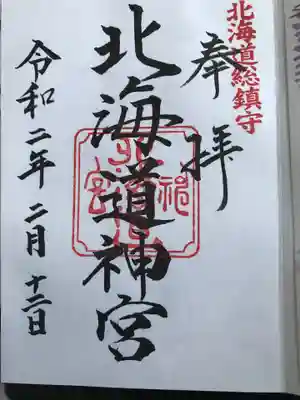 北海道総鎮守
奉拝
北海道神宮
令和二年二月十二日